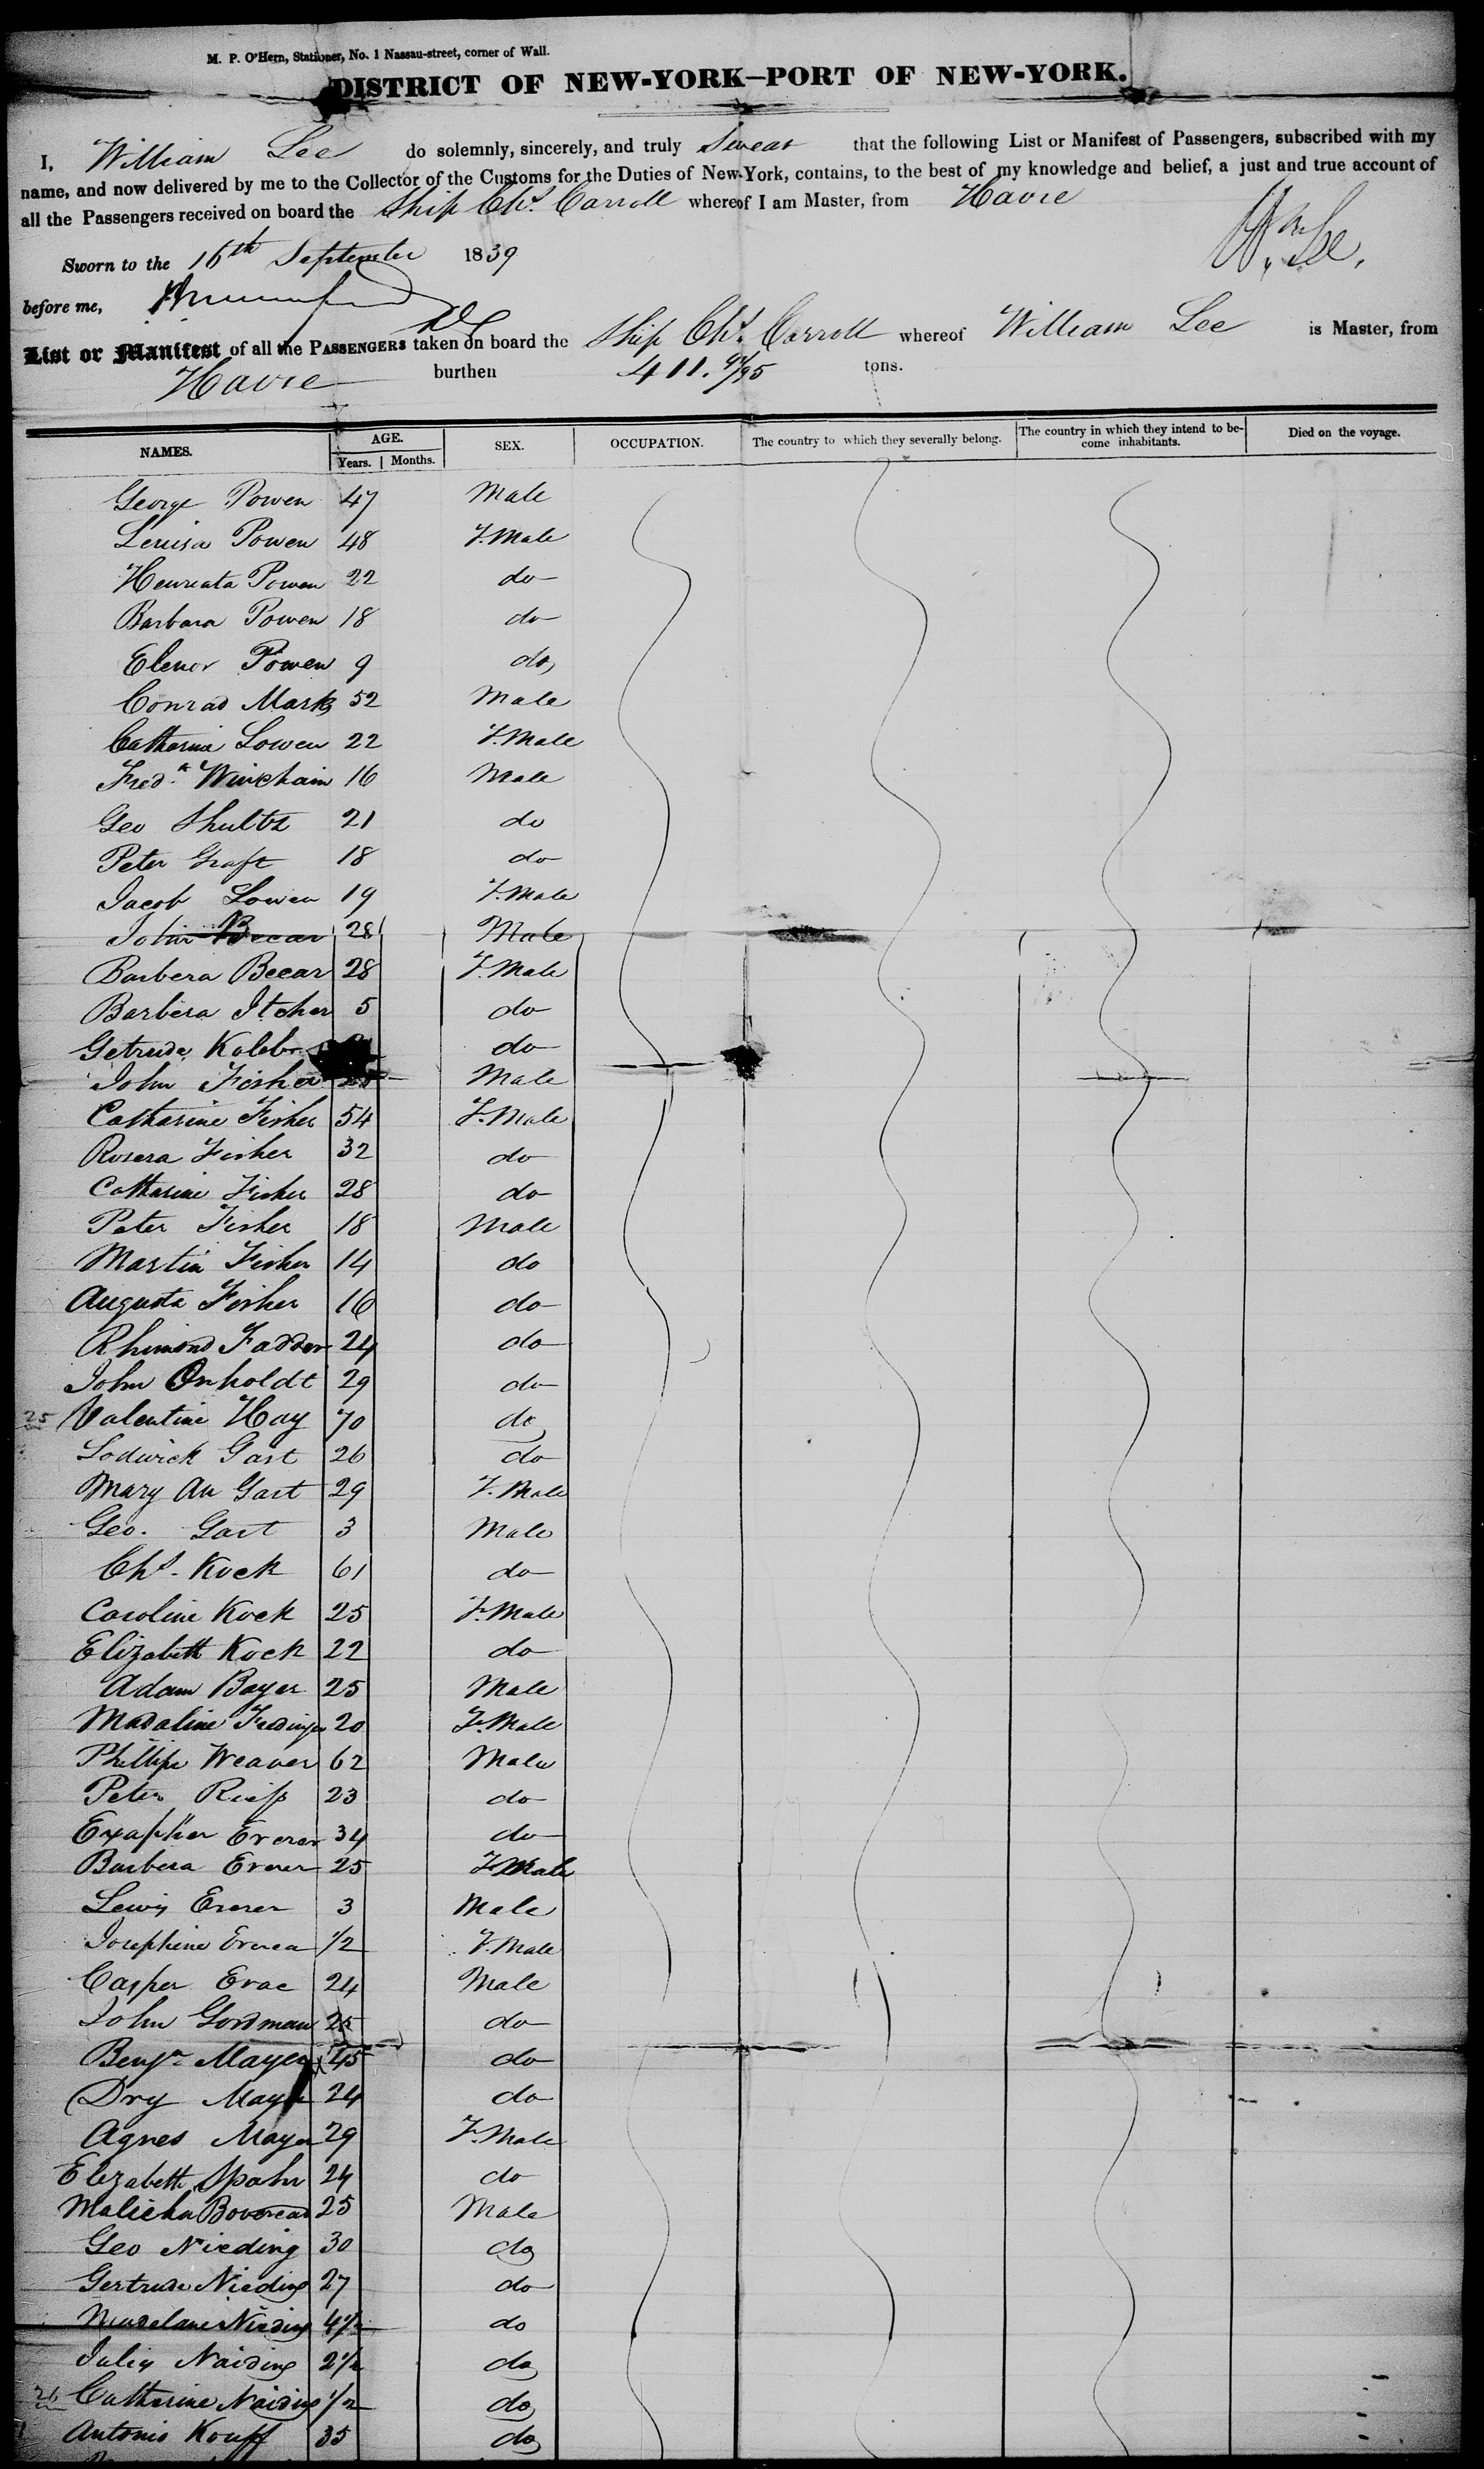 M. P. O'Hern, Stationer, No. 1 Nassau-street, corner of Wall.
DISTRICT OF NEW-YORK—PORT OF NEW-YORK.
I, William Lee do solemnly, sincerely, and truly Swear that the following List or Manifest of Passengers, subscribed with my
name, and now delivered by me to the Collector of the Customs for the Duties of New-York, contains, to the best of my knowledge and belief, a just and true account of
all the Passengers received on board the Ship Chs. Carroll whereof I am Master, from Havre
Wm Lee,
Sworn to the 16th September 1839
before me,
List or Manifest of all the PASSENGERS taken on board the Ship Chs. Carroll whereof William Lee is Master, from
Havre burthen 411. 94/95 tons.
NAMES. AGE. Years. Months. SEX. OCCUPATION. The country to which they severally belong. The country in which they intend to become inhabitants. Died on the voyage.
George Powen 47 Male
Leuisa Powen 48 F.Male
Henreata Powen 22 do
Barbara Powen 18 do
Elenor Powen 9 do
Conrad Marks 52 Male
Catharine Lowen 22 F.Male
Fredk Winchain 16 Male
Geo Shultz 21 do
Peter Graft 18 do
Jacob Lowen 19 F.Male
John Becar 28 Male
Barbera Becar 28 F.Male
Barbera Itcher 5 do
Getrude do
John Fisher Male
Catharine Fisher 54 F.Male
Rosera Fisher 32 do
Catharine Fisher 28 do
Peter Fisher 18 Male
Martin Fisher 14 do
Augusta Fisher 16 do
Rhimond Fadder 24 do
John Onholdt 29 do
25 Valentine Hay 70 do
Lodwick Gast 26 do
Mary An Gast 29 F.Male
Geo. Gast 3 Male
Chs. Kock 61 do
Caroline Kock 25 F.Male
Elizabeth Kock 22 do
Adam Boyer 25 Male
Madaline Fredinger 20 F.Male
Phillip Weaver 62 Male
Peter Reiss 23 do
Exapher Everer 34 do
Barbera Everer 25 F.Male
Lewis Ererer 3 Male
Josephine Everea 1/2 F.Male
Casper Evae 24 Male
John Gordman 25 do
Benjn Mayer 45 do
Dry Mayer 24 do
Agnes Mayer 29 F.Male
Elizabeth Spahr 24 do
Malicha 25 Male
Geo Nieding 30 do
Gertrude Nieding 27 do
Madelane Nieding 4 1/2 do
Julia Naiding 2 1/2 do
26 Catharine Naiding 1/2 do
Antonio Kouff 35 do